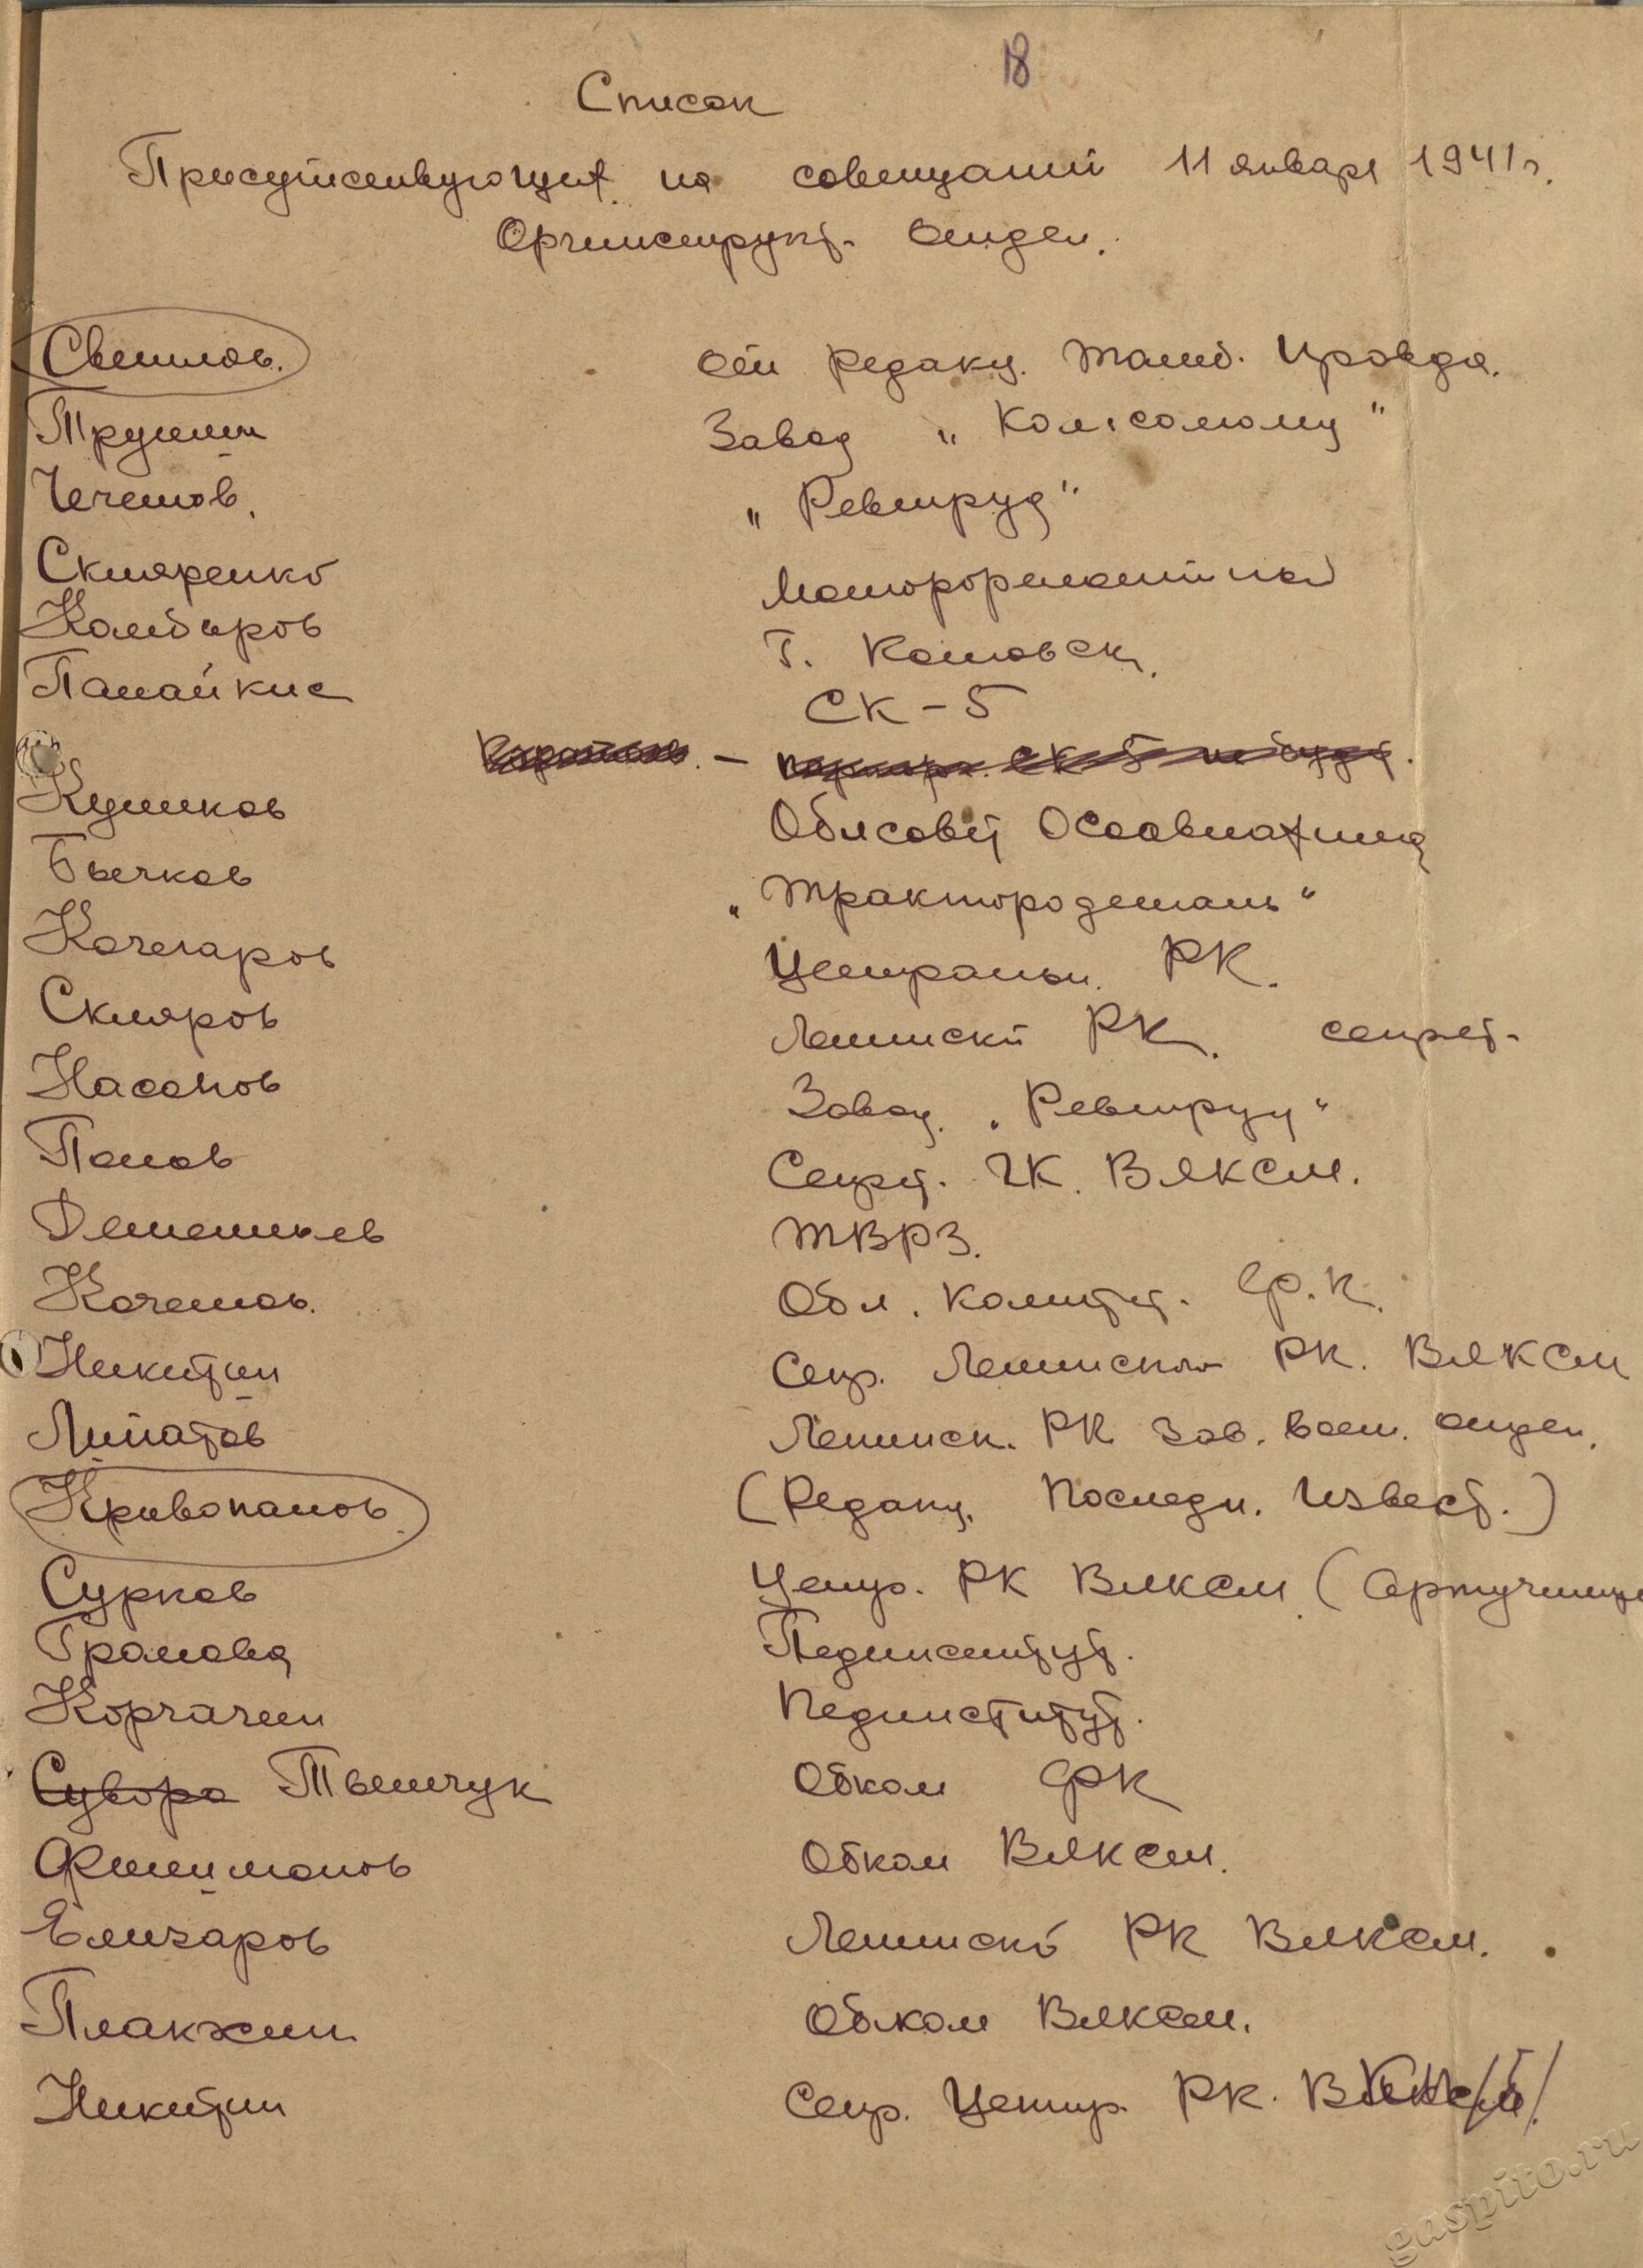 18
Список
Присутствующих на совещании 11 января 1941 г.
Оргинструкт. отдел.
Светлов. От редакц. Тамб. Правда.
Трунин Завод "Комсомолец"
Чечетов. "Ревтруд"
Скляренко Мотороремонтный
Камбаров г. Котовск.
Панайкис СК-5
Кушков Облсовет Осоавиахима
Бычков "Трактородеталь"
Кочегаров Централън. РК.
Скляров Ленинский РК. секрет.
Насонов Завод. "Ревтруд"
Попов Секрт. ГК. ВЛКСМ.
Дементьев ТВРЗ.
Кочетов. Обл. Комитет. Ф.К.
Никитин Секр. Ленинского РК. ВЛКСМ
Липатов Ленинск. РК Зав. воен. отдел.
Кривопалов. (Редакц. Последн. Извест.)
Сурков Центр. РК ВЛКСМ (Артучилище
Громова Пединститут.
Корчагин Пединститут.
Суворо Тымчук Обком ФК
Филимонов Обком ВЛКСМ.
Елизаров Ленинский РК ВЛКСМ.
Плакхин Обком ВЛКСМ.
Никитин Секр. Центр. РК.
gaspito.ru